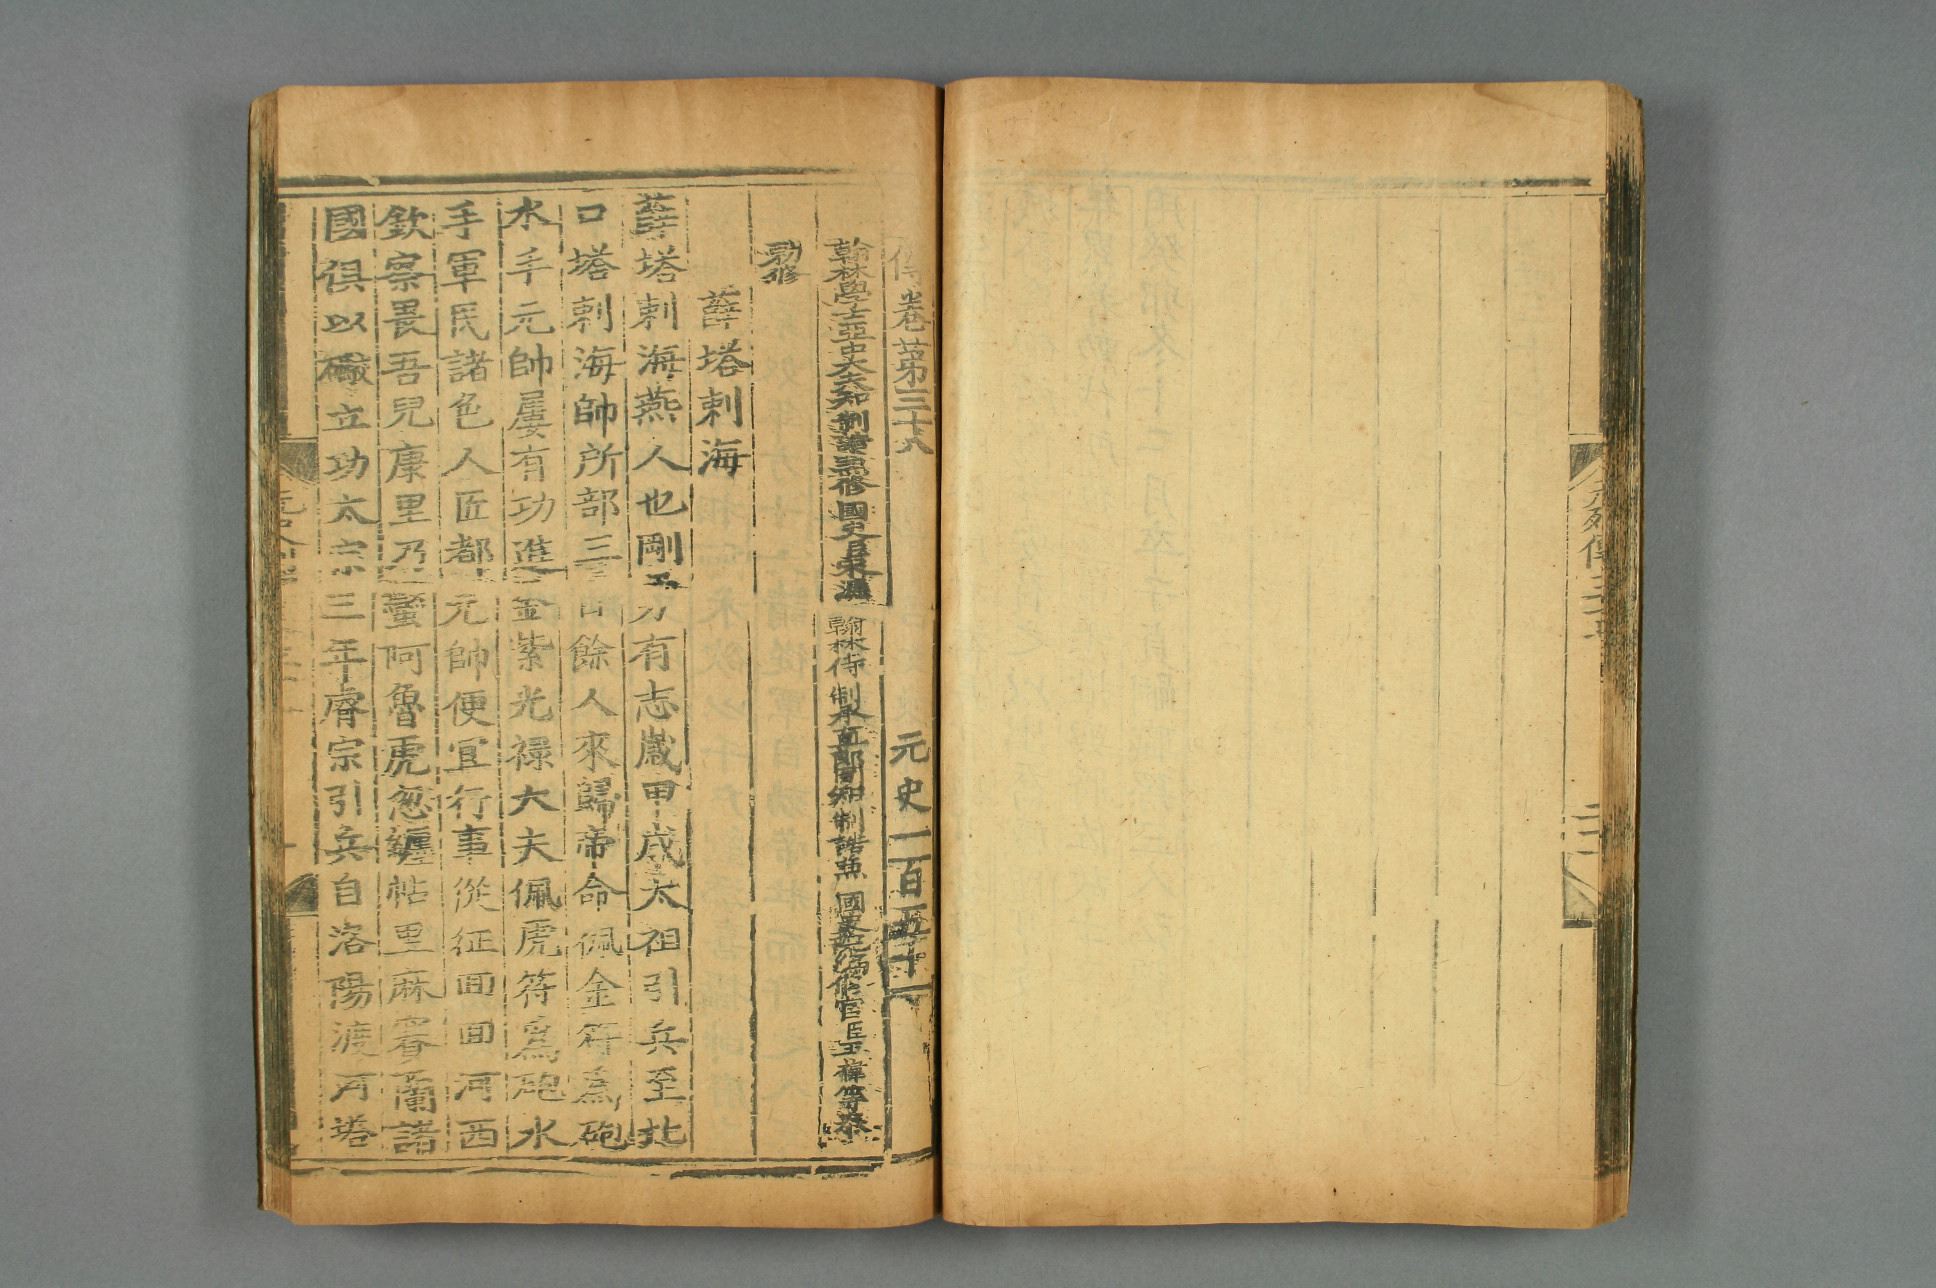 元列傳三十
二十一
傳卷第三十八 元史一百五十一
翰林學士亞中大夫知制誥兼修國史臣宋濂 翰林侍制承直郎同知制誥兼國史院編修官臣王禕等奉
勅修
薛塔剌海
薛塔剌海燕人也剛勇有志歲甲戌太祖引兵至北
口塔剌海帥所部三百餘人來歸帝命佩金符為砲
水手元帥屢有功進金紫光祿大夫佩虎符為砲水
手軍民諸色人匠都元帥便宜行事從征回回河西
欽察畏吾兒康里乃蠻阿魯虎忽纏帖里麻賽蘭諸
國俱以礮立功太宗三年睿宗引兵自洛陽渡河塔